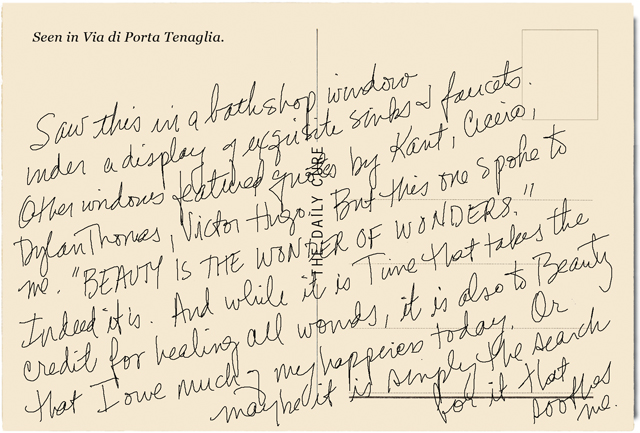 Seen in Via di Porta Tenaglia.
Saw this in a bathshop window
under a display of exquisite sinks & faucets.
Other windows featured quotes by Kant, Cicero,
Dylan Thomas, Victor Hugo. But this one spoke to
me. "BEAUTY IS THE WONDER OF WONDERS."
Indeed it is. And while it is Time that takes the
credit for healing all wounds, it is also to Beauty
that I owe much of my happiness today. Or
maybe it is simply the search
for it that
soothes
me.
THE DAILY CURE